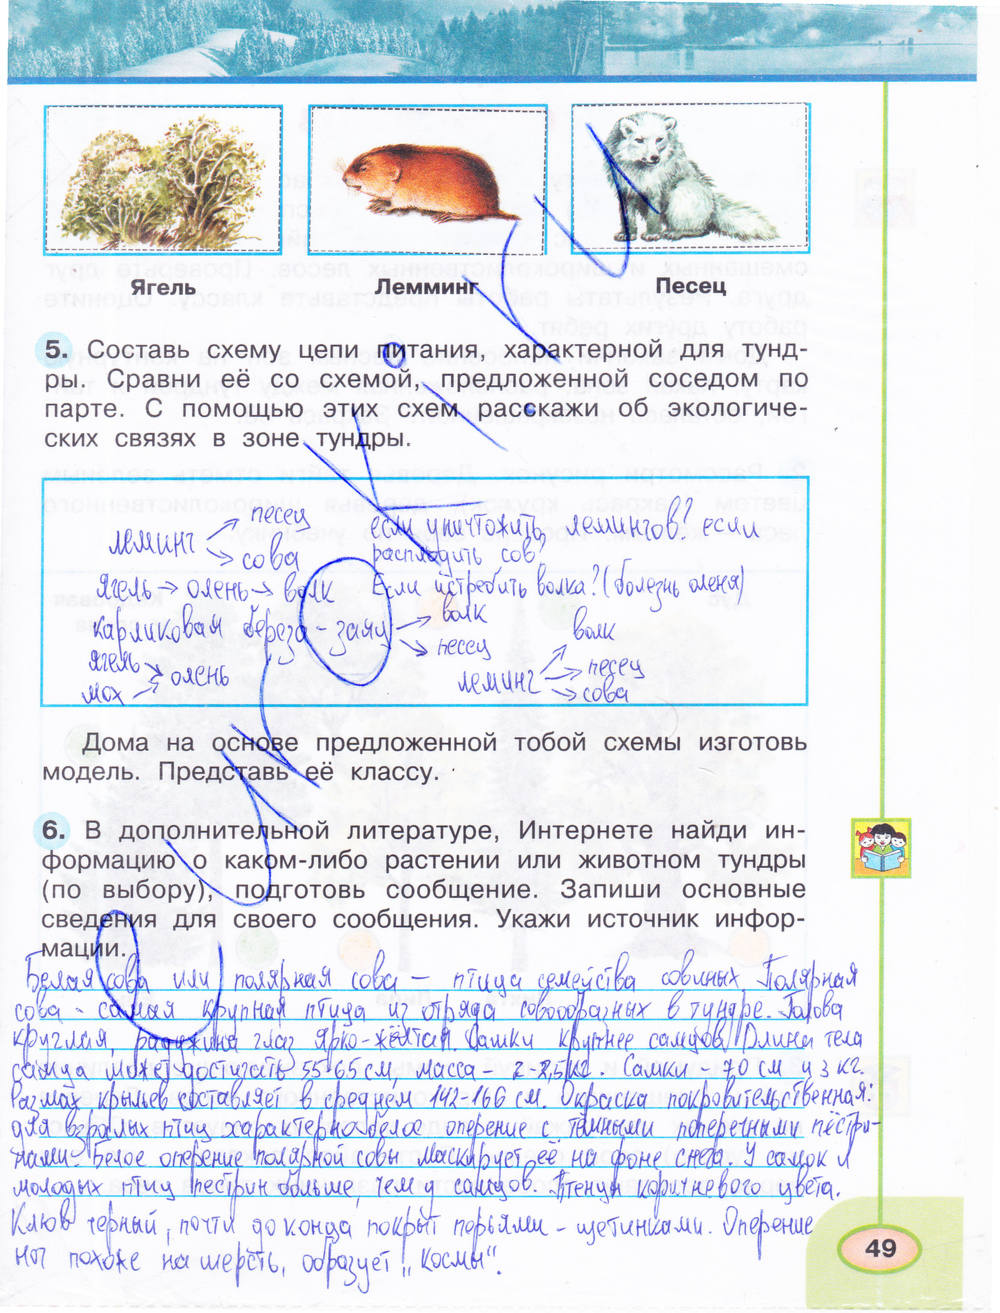 Ягель Лемминг Песец
5. Составь схему цепи питания, характерной для тунд-
ры. Сравни её со схемой, предложенной соседом по
парте. С помощью этих схем расскажи об экологиче-
ских связях в зоне тундры.
леминг → песец
→ сова
если уничтожить лемингов? если
расплодить сов?
ягель → олень → волк Если истребить волка? (болезнь оленя)
карликовая береза - заяц → волк
→ песец
ягель → олень
мох →
леминг → волк
→ песец
→ сова
Дома на основе предложенной тобой схемы изготовь
модель. Представь её классу.
6. В дополнительной литературе, Интернете найди ин-
формацию о каком-либо растении или животном тундры
(по выбору), подготовь сообщение. Запиши основные
сведения для своего сообщения. Укажи источник инфор-
мации.
Белая сова или полярная сова – птица семейства совиных. Полярная
сова - самая крупная птица из отряда совообразных в тундре. Голова
круглая, радужина глаз ярко-жёлтая. Самки крупнее самцов. Длина тела
самца может достигать 55-65 см, масса - 2-2,5 кг. Самки - 70 см и 3 кг.
Размах крыльев составляет в среднем 142-166 см. Окраска покровительственная:
для взрослых птиц характерно белое оперение с тёмными поперечными пёстри-
нами. Белое оперение полярной совы маскирует её на фоне снега. У самок и
молодых птиц пестрин больше, чем у самцов. Птенцы коричневого цвета.
Клюв черный, почти до конца покрыт перьями - щетинками. Оперение
ног похоже на шерсть, образует „космы".
49